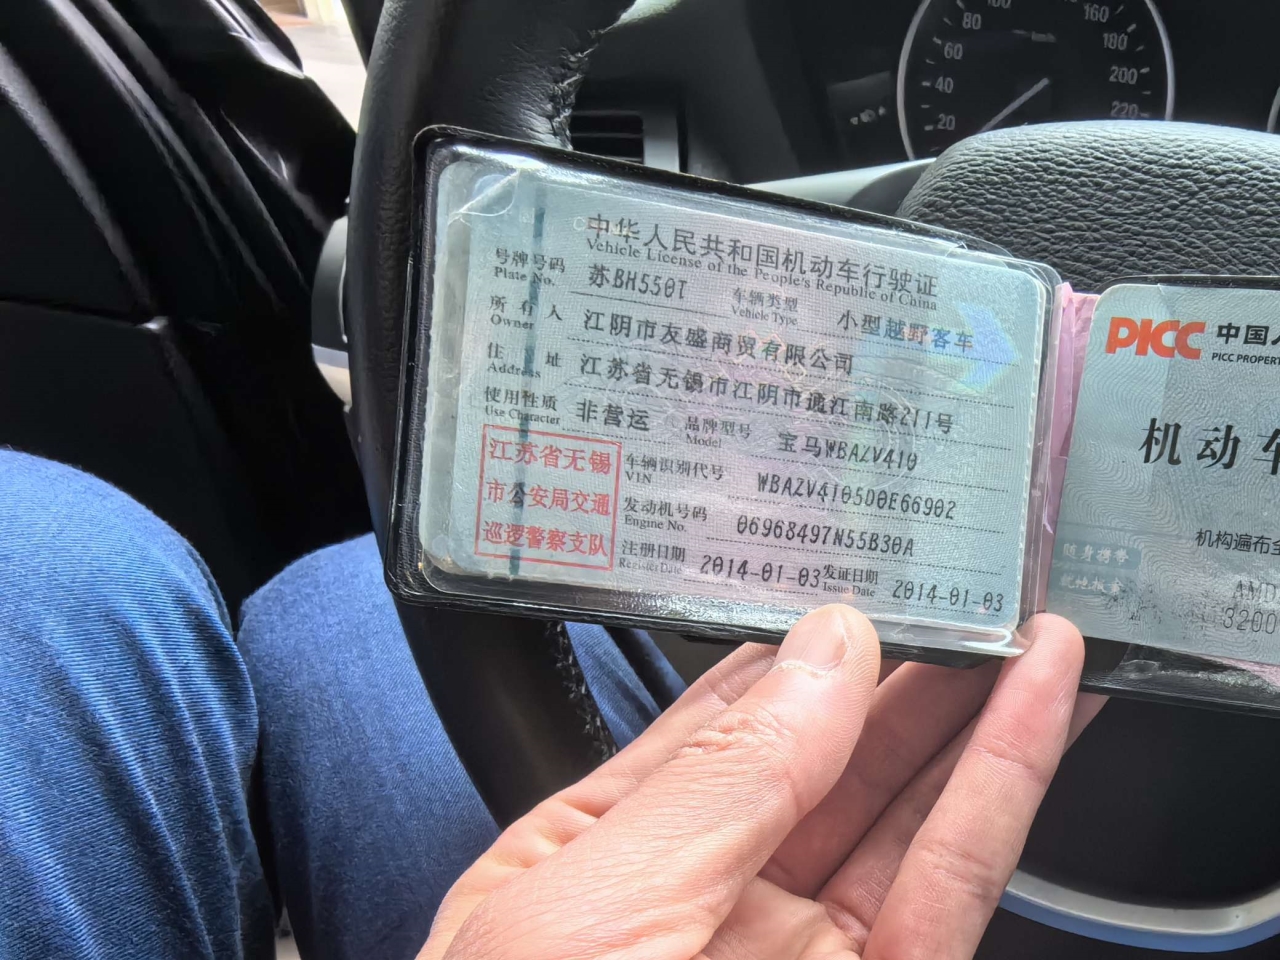 100
80
60
40
20
km/h
160
180
200
220
中华人民共和国机动车行驶证
Vehicle License of the People's Republic of China
号牌号码 苏BH550T 车辆类型 小型越野客车
Plate No. Vehicle Type
所有人 江阴市友盛商贸有限公司
Owner
住址 江苏省无锡市江阴市通江南路211号
Address
使用性质 非营运 品牌型号 宝马WBAZV410
Use Character Model
江苏省无锡
市公安局交通
巡逻警察支队
车辆识别代号 WBAZV4105D0E66902
VIN
发动机号码 06968497N55B30A
Engine No.
注册日期 2014-01-03 发证日期 2014-01-03
Register Date Issue Date
PICC 中国
PICC PROPERT
机动车
机构遍布全
随身携带
AMD
3200